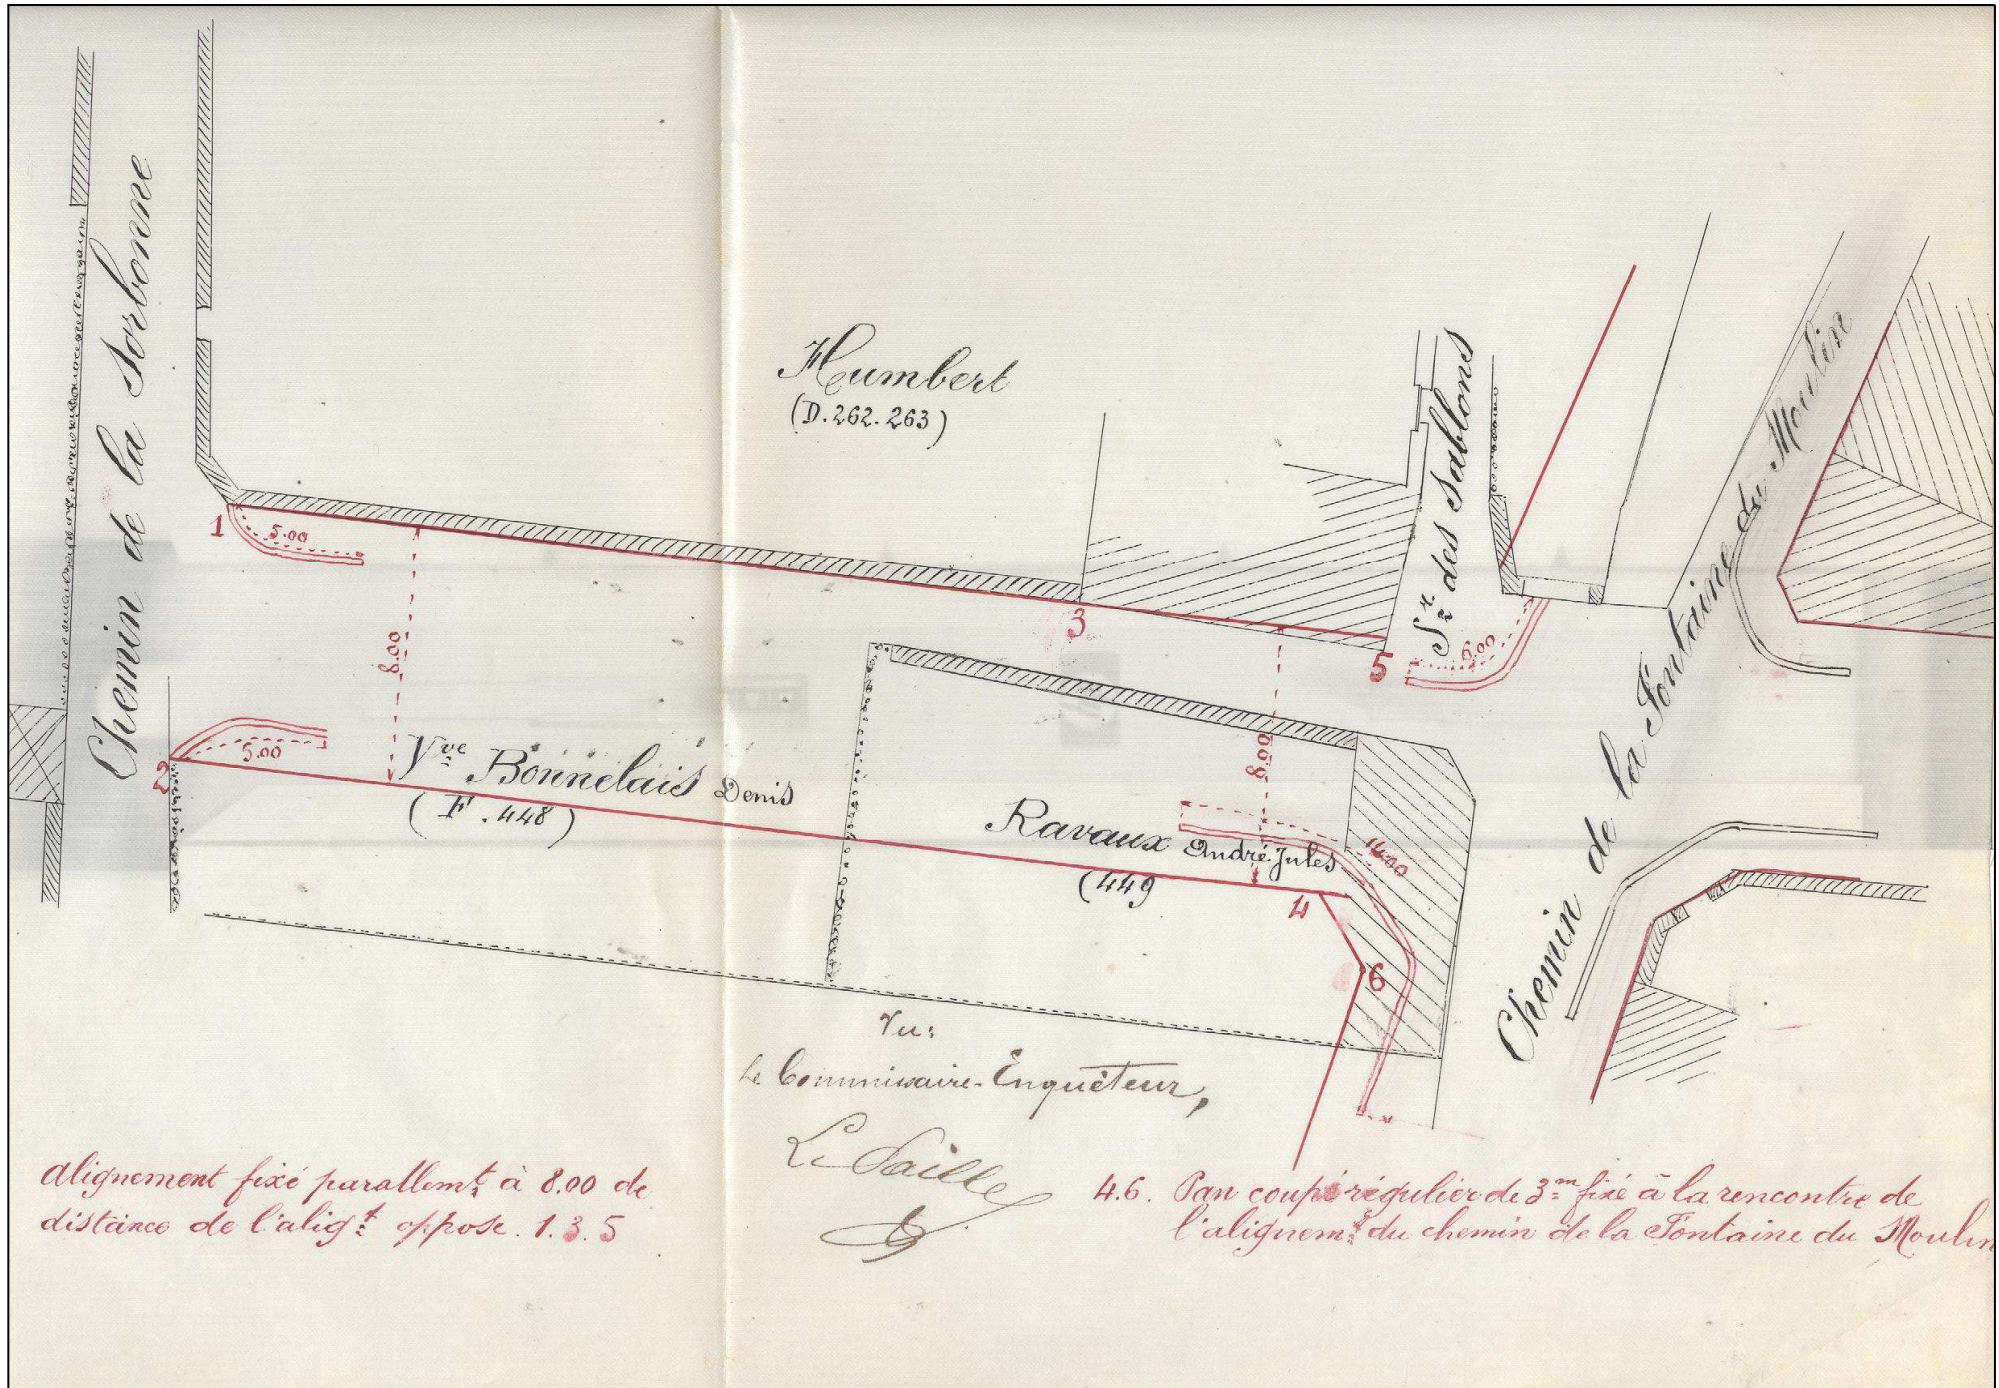 Chemin de la Sorbonne
Humbert
(D.262.263)
S.r des Sablons
Chemin de la Fontaine du Moulin
1
5.00
8.00
3
5
6.00
2
5.00
Vve Bonnelais Denis
( F .448 )
Ravaux André Jules
(449
8.00
4
6
Vu:
Le Commissaire-Enquêteur,
alignement fixé parallemt à 8.00 de
distance de l'aligt oppose. 1.3.5
4.6. Pan coupé régulier de 3m fixé à la rencontre de
l'alignemt du chemin de la Fontaine du Moulin